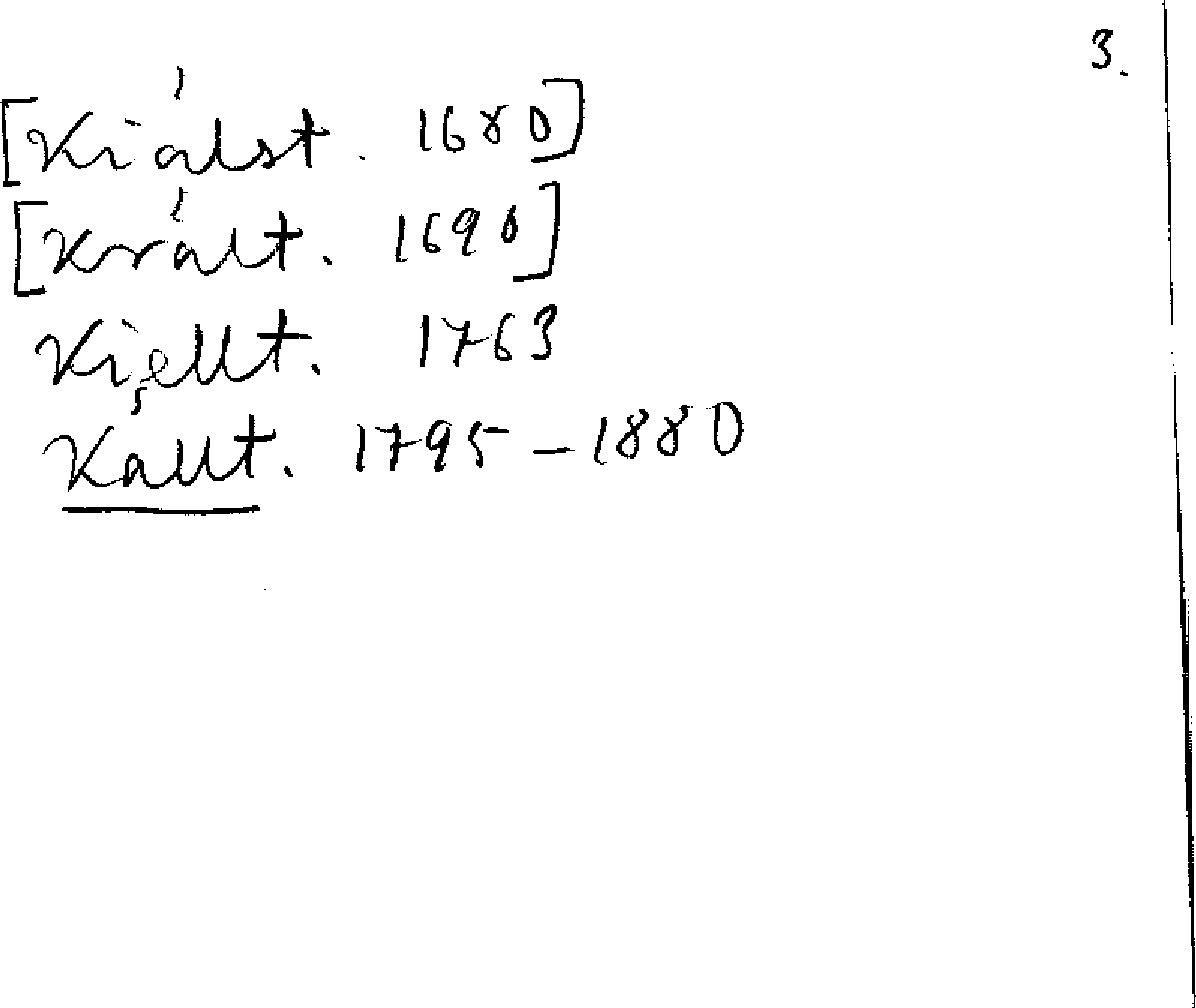 3.
[Kiålst. 1680]
[Krålt. 1690]
Kiellt. 1763
Kållt. 1795–1880